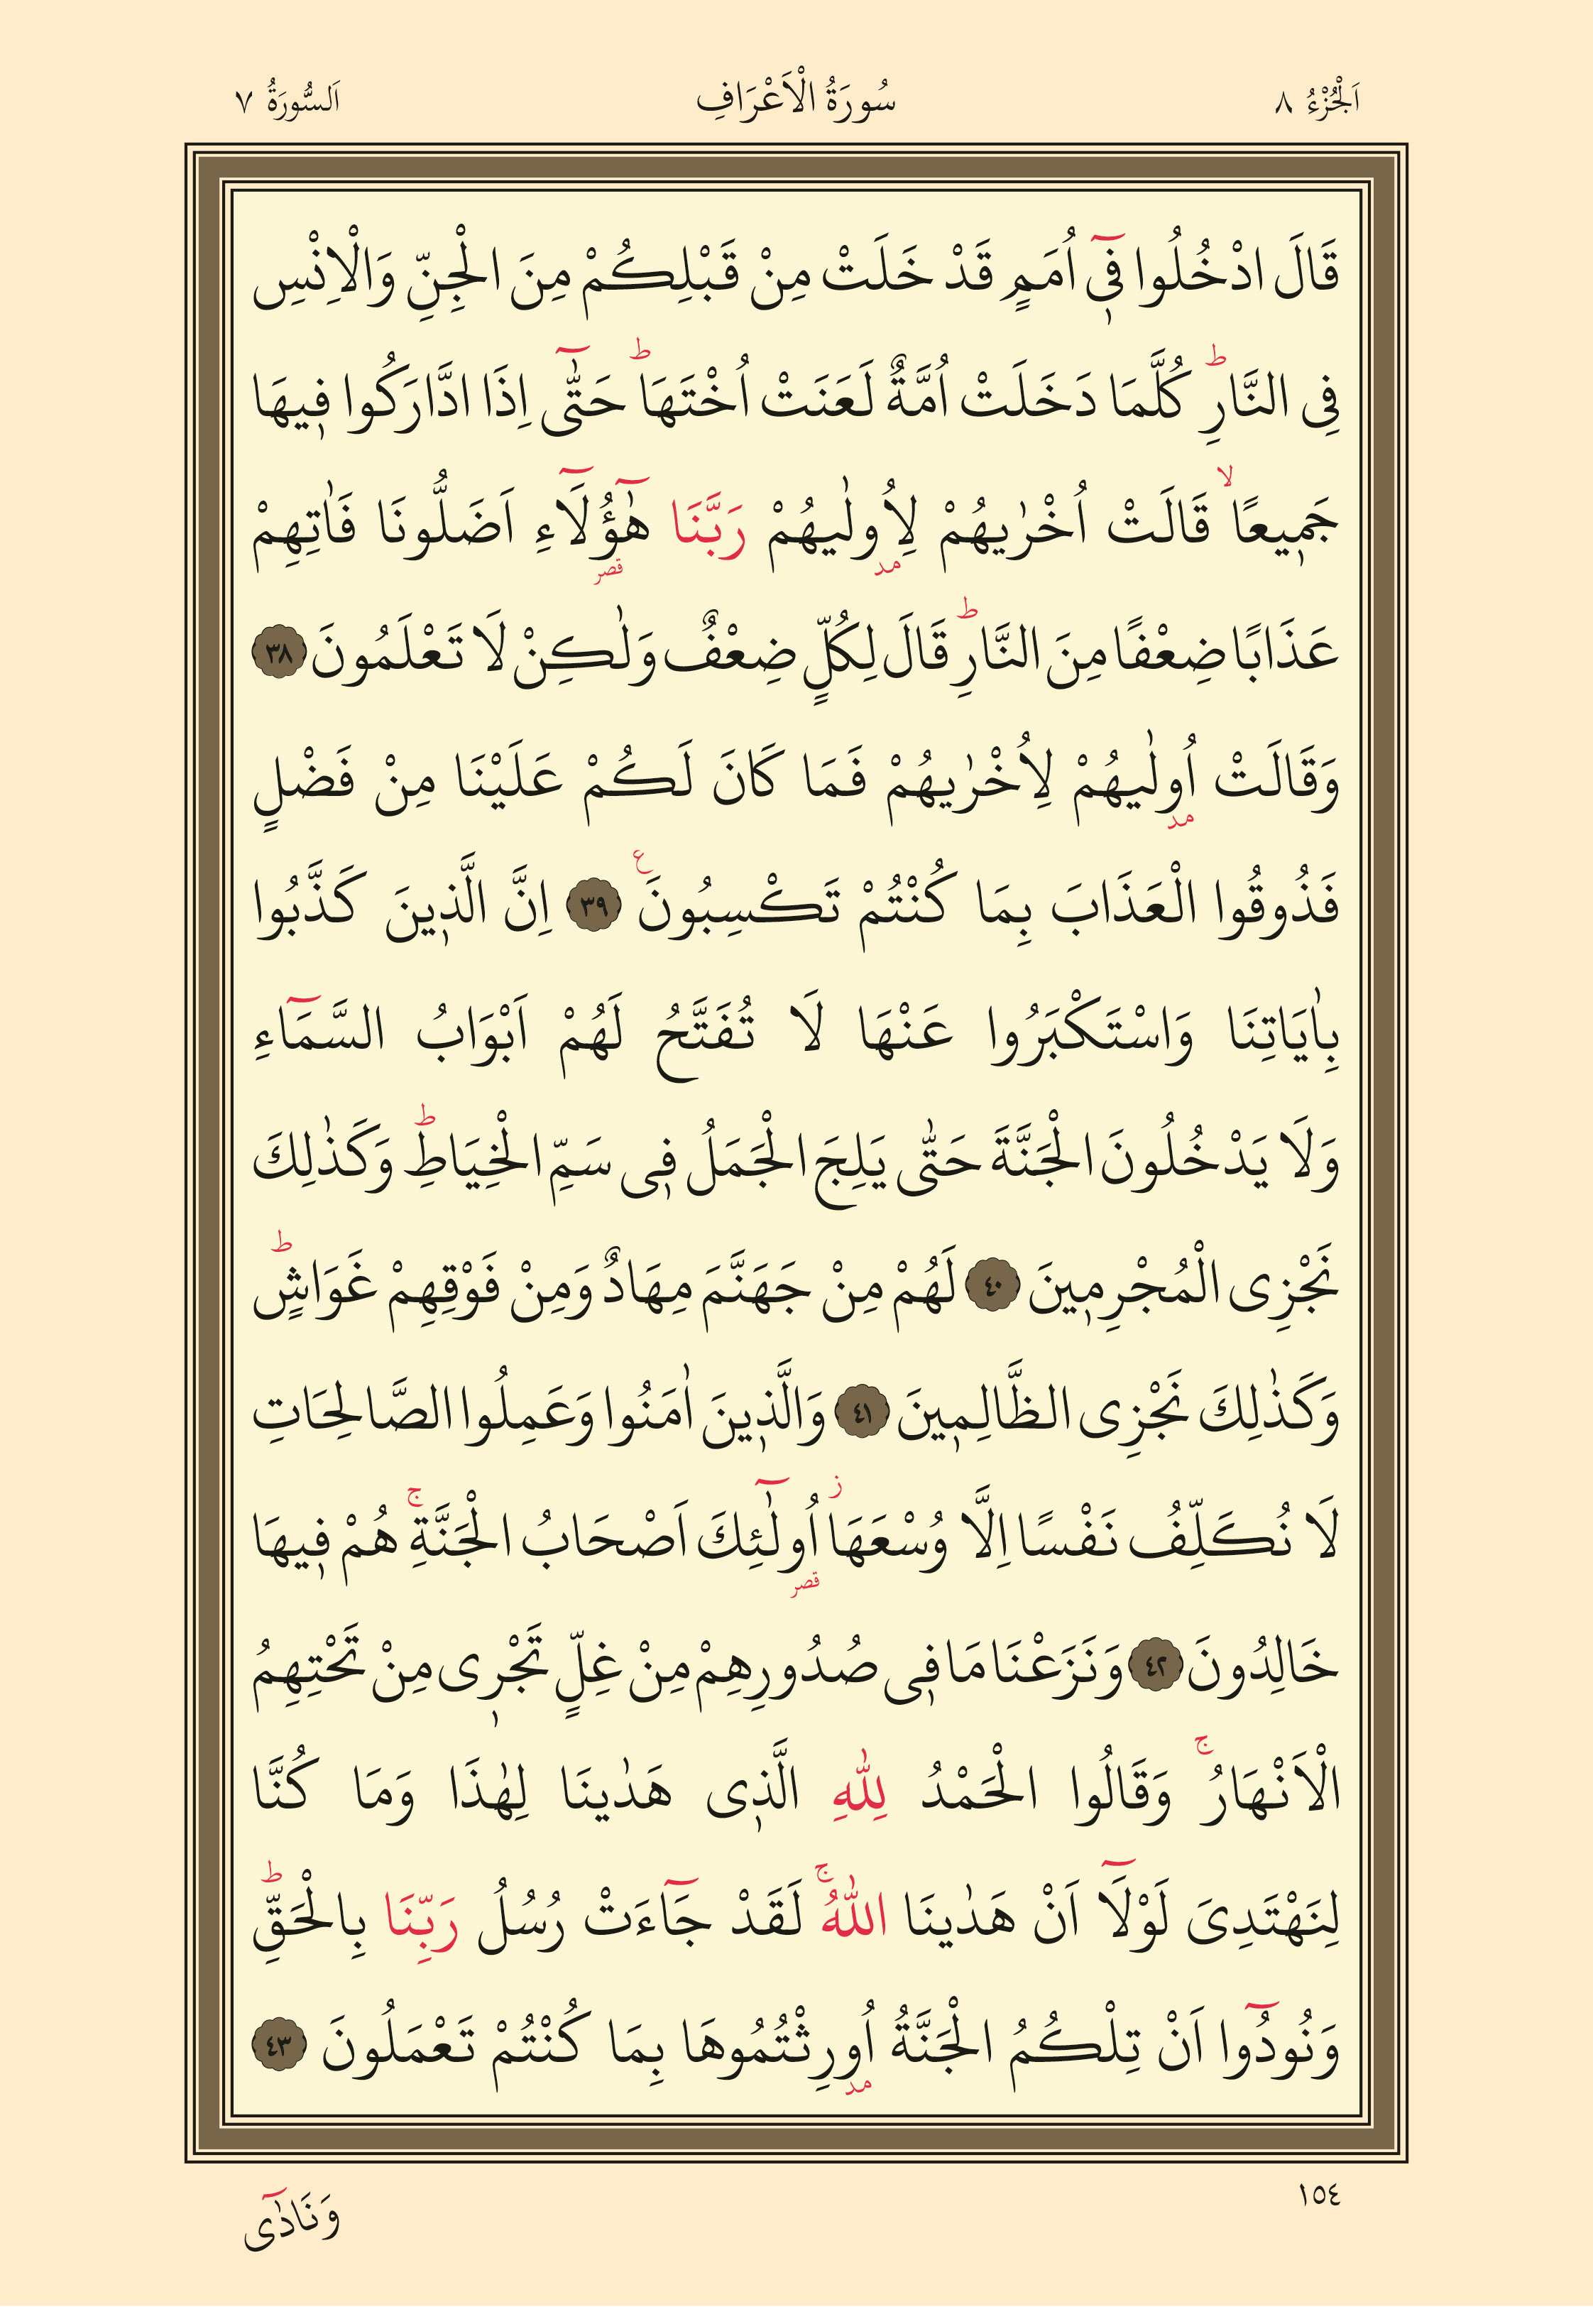 اَلْجُزْءُ ٨ سُورَةُ الْاَعْرَافِ اَلسُّورَةُ ٧
قَالَ ادْخُلُوا فٖٓى اُمَمٍ قَدْ خَلَتْ مِنْ قَبْلِكُمْ مِنَ الْجِنِّ وَالْاِنْسِ
فِى النَّارِؕ كُلَّمَا دَخَلَتْ اُمَّةٌ لَعَنَتْ اُخْتَهَاؕ حَتّٰٓى اِذَا ادَّارَكُوا فٖيهَا
جَمٖيعًاۙ قَالَتْ اُخْرٰيهُمْ لِاُو۫لٰيهُمْ رَبَّنَا هٰٓؤُ۬لَٓاءِ اَضَلُّونَا فَاٰتِهِمْ
عَذَابًا ضِعْفًا مِنَ النَّارِؕ قَالَ لِكُلٍّ ضِعْفٌ وَلٰكِنْ لَا تَعْلَمُونَ ٣٨
وَقَالَتْ اُو۫لٰيهُمْ لِاُخْرٰيهُمْ فَمَا كَانَ لَكُمْ عَلَيْنَا مِنْ فَضْلٍ
فَذُوقُوا الْعَذَابَ بِمَا كُنْتُمْ تَكْسِبُونَ ع ٣٩ اِنَّ الَّذٖينَ كَذَّبُوا
بِاٰيَاتِنَا وَاسْتَكْبَرُوا عَنْهَا لَا تُفَتَّحُ لَهُمْ اَبْوَابُ السَّمَٓاءِ
وَلَا يَدْخُلُونَ الْجَنَّةَ حَتّٰى يَلِجَ الْجَمَلُ فٖى سَمِّ الْخِيَاطِؕ وَكَذٰلِكَ
نَجْزِى الْمُجْرِمٖينَ ٤٠ لَهُمْ مِنْ جَهَنَّمَ مِهَادٌ وَمِنْ فَوْقِهِمْ غَوَاشٍؕ
وَكَذٰلِكَ نَجْزِى الظَّالِمٖينَ ٤١ وَالَّذٖينَ اٰمَنُوا وَعَمِلُوا الصَّالِحَاتِ
لَا نُكَلِّفُ نَفْسًا اِلَّا وُسْعَهَا ز اُو۬لٰٓئِكَ اَصْحَابُ الْجَنَّةِۚ هُمْ فٖيهَا
خَالِدُونَ ٤٢ وَنَزَعْنَا مَا فٖى صُدُورِهِمْ مِنْ غِلٍّ تَجْرٖى مِنْ تَحْتِهِمُ
الْاَنْهَارُۚ وَقَالُوا الْحَمْدُ لِلّٰهِ الَّذٖى هَدٰينَا لِهٰذَا وَمَا كُنَّا
لِنَهْتَدِىَ لَوْلَٓا اَنْ هَدٰينَا اللّٰهُۚ لَقَدْ جَٓاءَتْ رُسُلُ رَبِّنَا بِالْحَقِّؕ
وَنُودُٓوا اَنْ تِلْكُمُ الْجَنَّةُ اُو۫رِثْتُمُوهَا بِمَا كُنْتُمْ تَعْمَلُونَ ٤٣
١٥٤ وَنَادٰٓى